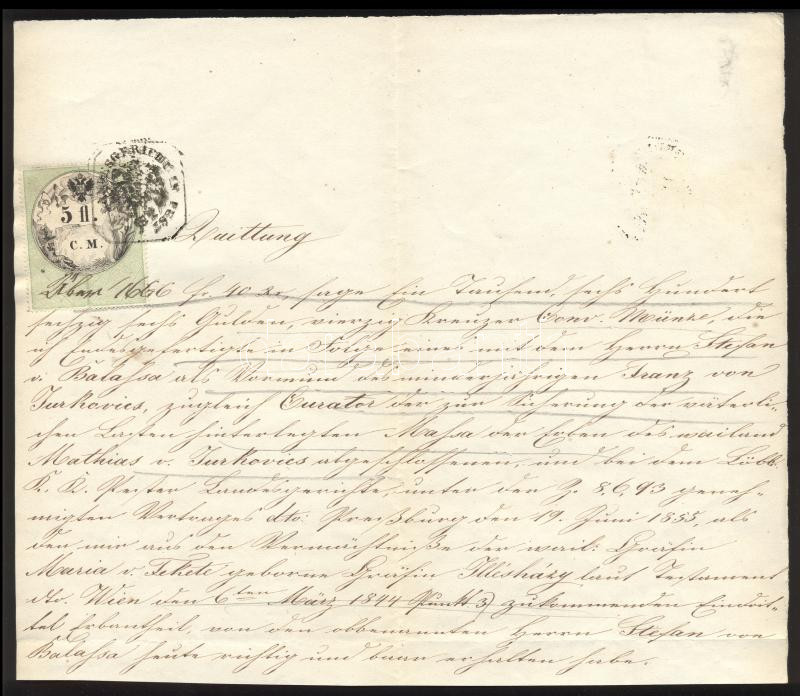 LANDESGERICHT IN PEST
5 fl.
C. M.
Quittung
Über 1666 fr. 40 xr, sage Ein Tausend, sechs Hundert
sechzig sechs Gulden, vierzig Kreuzer Conv. Münze, die
ich Endesgefertigte in Folge eines mit dem Herrn Stefan
v. Balassa als Vormund des minderjährigen Franz von
Jurkovics, zugleich Curator der zur Sicherung der väterli-
chen Lasten hinterlegten Massa der Erben des weiland
Mathias v. Jurkovics abgeschlossenen, und bei dem Löbl.
K. K. Pester Landesgerichte, unter den Z. 8,693 geneh-
migten Vertrages dto: Preßburg den 19. Juni 1855, als
den mir aus den Vermächtniße der weil: Gräfin
Maria v. Fekete geborne Gräfin Illésházy laut Testament
dto. Wien den 6ten März 1844 Punkt 3) zukommenden Eindrit-
tel Erbantheil, von den obbenannten Herrn Stefan von
Balassa heute richtig und baar erhalten habe.